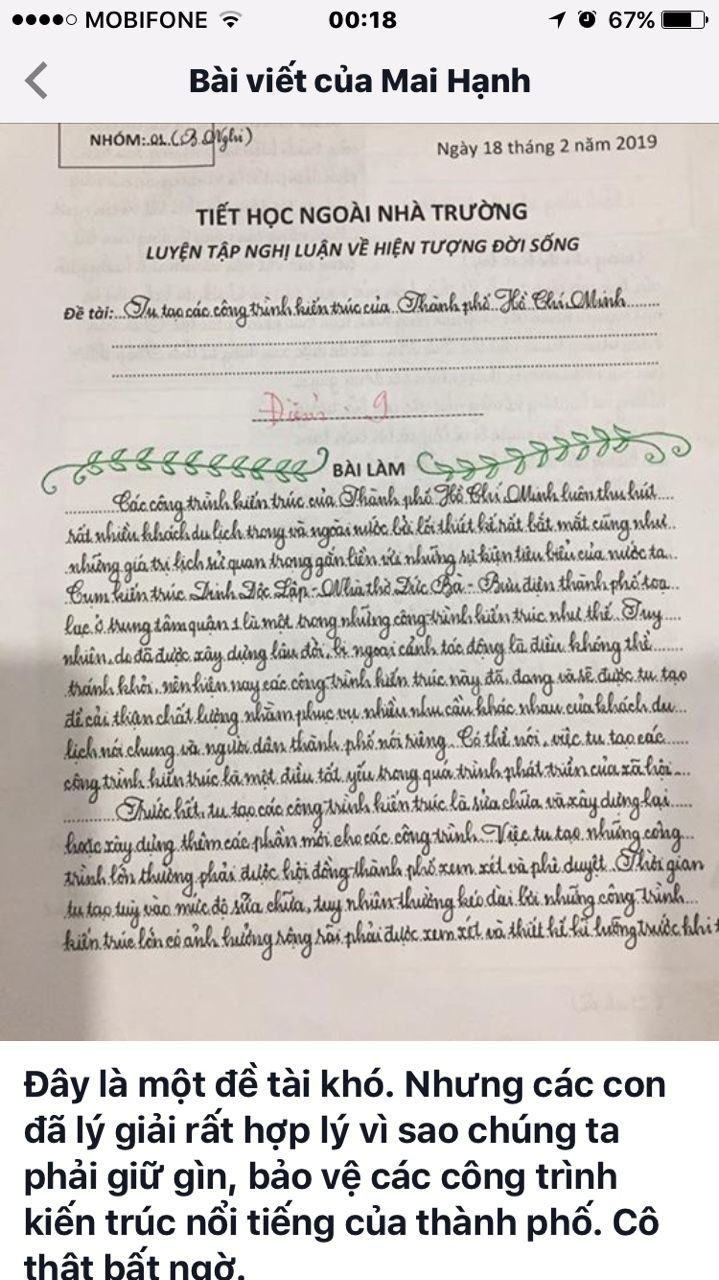 MOBIFONE 00:18 67%
Bài viết của Mai Hạnh
NHÓM: 01 (B. Nghi)
Ngày 18 tháng 2 năm 2019
TIẾT HỌC NGOÀI NHÀ TRƯỜNG
LUYỆN TẬP NGHỊ LUẬN VỀ HIỆN TƯỢNG ĐỜI SỐNG
Đề tài: Tu tạo các công trình kiến trúc của Thành phố Hồ Chí Minh
Điểm: 9
BÀI LÀM
Các công trình kiến trúc của Thành phố Hồ Chí Minh luôn thu hút
rất nhiều khách du lịch trong và ngoài nước bởi lối thiết kế rất bắt mắt cũng như
những giá trị lịch sử quan trong gắn liền với những sự kiện tiêu biểu của nước ta.
Cụm kiến trúc Dinh Độc Lập - Nhà thờ Đức Bà - Bưu điện thành phố toạ
lạc ở trung tâm quận 1 là một trong những công trình kiến trúc như thế. Tuy
nhiên, do đã được xây dựng lâu đời, bị ngoại cảnh tác động là điều không thể
tránh khỏi, nên hiện nay các công trình kiến trúc này đã, đang và sẽ được tu tạo
để cải thiện chất lượng nhằm phục vụ nhiều nhu cầu khác nhau của khách du
lịch nói chung và người dân thành phố nói riêng. Có thể nói, việc tu tạo các
công trình kiến trúc là một điều tất yếu trong quá trình phát triển của xã hội.
Trước hết, tu tạo các công trình kiến trúc là sửa chữa và xây dựng lại
hoặc xây dựng thêm các phần mới cho các công trình. Việc tu tạo những công
trình lớn thường phải được hội đồng thành phố xem xét và phê duyệt. Thời gian
tu tạo tuỳ vào mức độ sửa chữa, tuy nhiên thường kéo dài bởi những công trình
kiến trúc lớn có ảnh hưởng rộng rãi phải được xem xét và thiết kế kĩ lưỡng trước khi
Đây là một đề tài khó. Nhưng các con
đã lý giải rất hợp lý vì sao chúng ta
phải giữ gìn, bảo vệ các công trình
kiến trúc nổi tiếng của thành phố. Cô
thật bất ngờ.